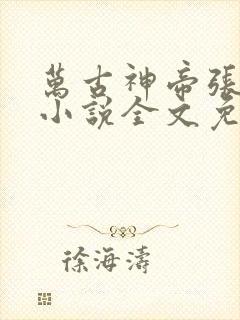 萬古神帝張
小說全文免
徐海濤